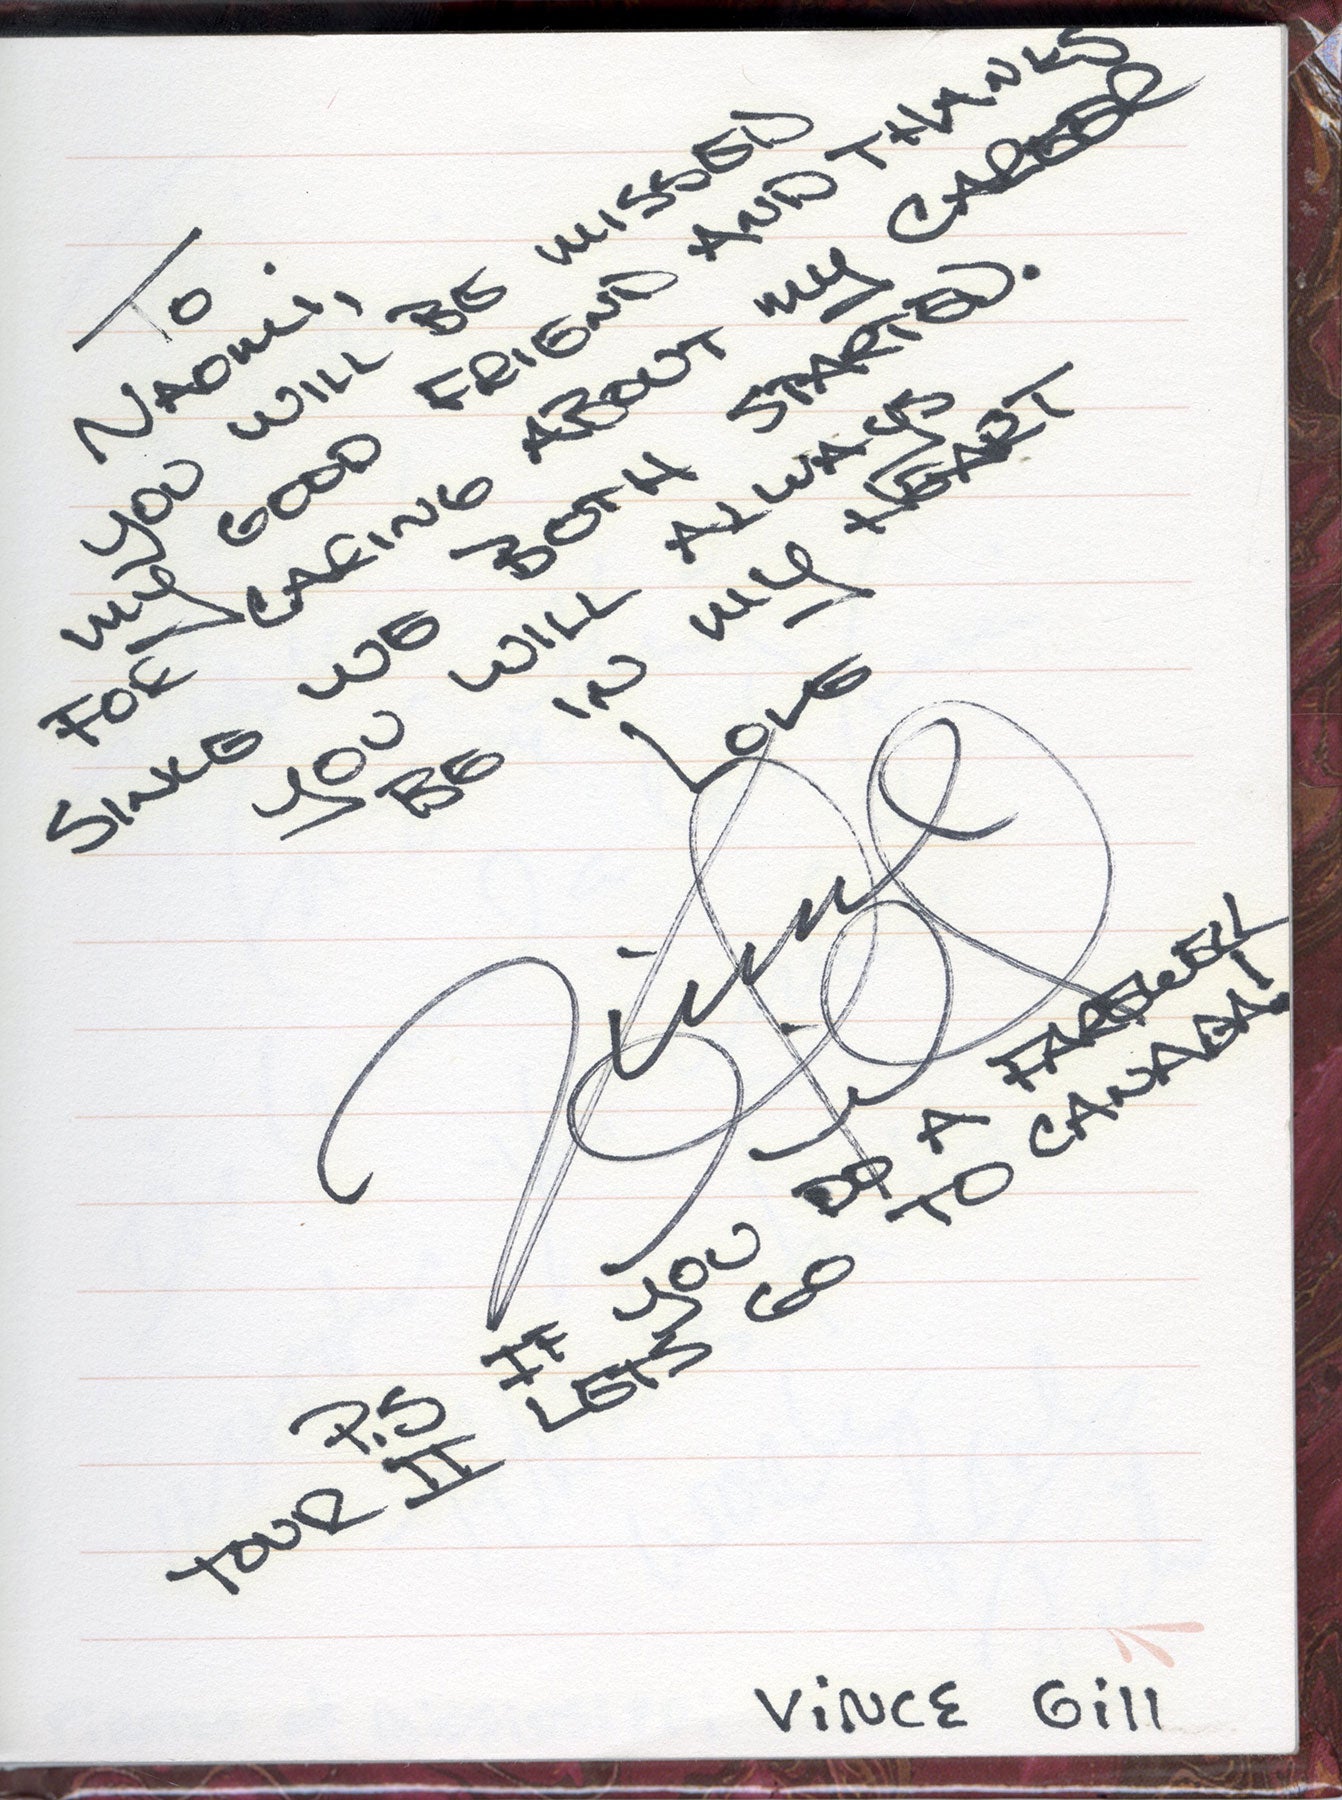 To
NAOMI,
YOU WILL BE MISSED
MY GOOD FRIEND AND THANKS
FOR CARING ABOUT MY CAREER
SINCE WE BOTH STARTED.
YOU WILL ALWAYS
BE IN MY HEART
LOVE
Vince Gill
P.S IF YOU DO A FAREWELL
TOUR II LETS GO TO CANADA!
ViNCE Gill